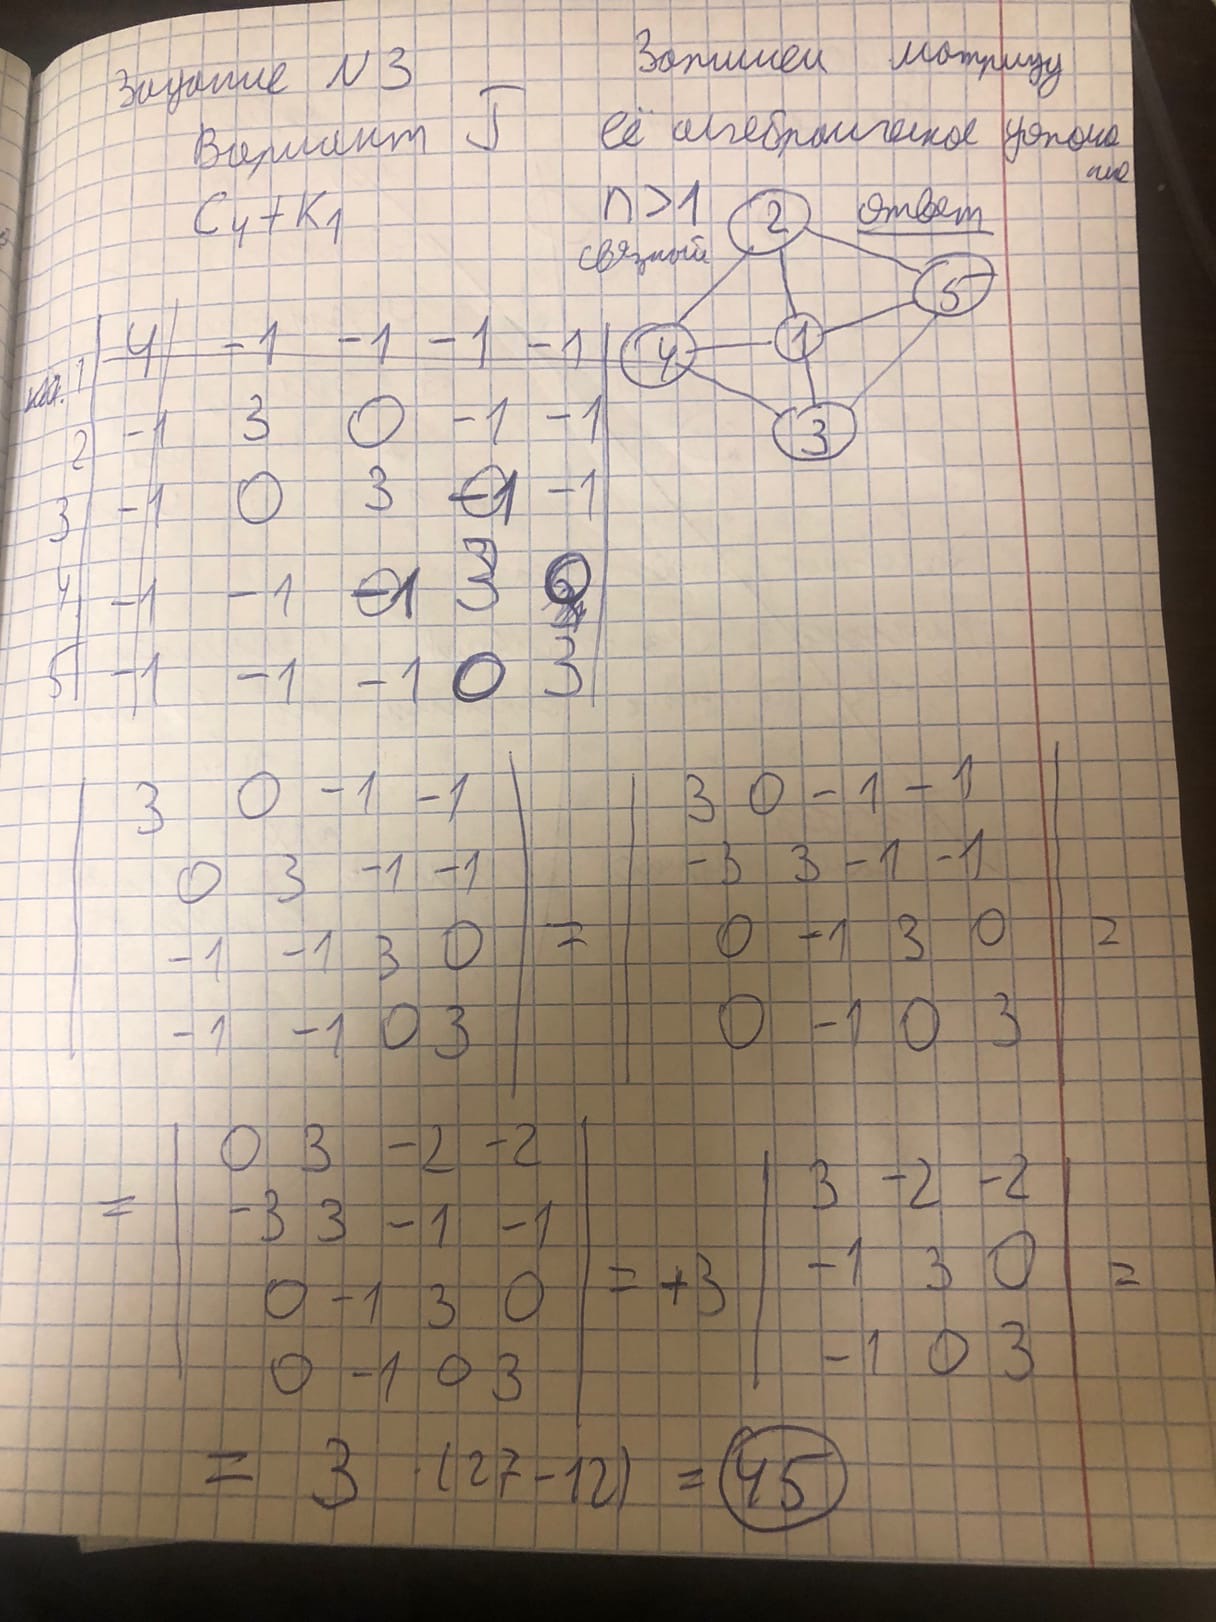 Задание N 3
Вариант 5
C4+K1
Запишем матрицу
её алгебраическое дополне
ние
n>1
связный
ответ
2
5
4
1
3
1 4 -1 -1 -1 -1
2 -1 3 0 -1 -1
3 -1 0 3 -1 -1
4 -1 -1 -1 3 0
5 -1 -1 -1 0 3
3 0 -1 -1
0 3 -1 -1
-1 -1 3 0
-1 -1 0 3
=
3 0 -1 -1
-3 3 -1 -1
0 -1 3 0
0 -1 0 3
=
=
0 3 -2 -2
-3 3 -1 -1
0 -1 3 0
0 -1 0 3
= +3
3 -2 -2
-1 3 0
-1 0 3
=
= 3 · (27-12) = 45